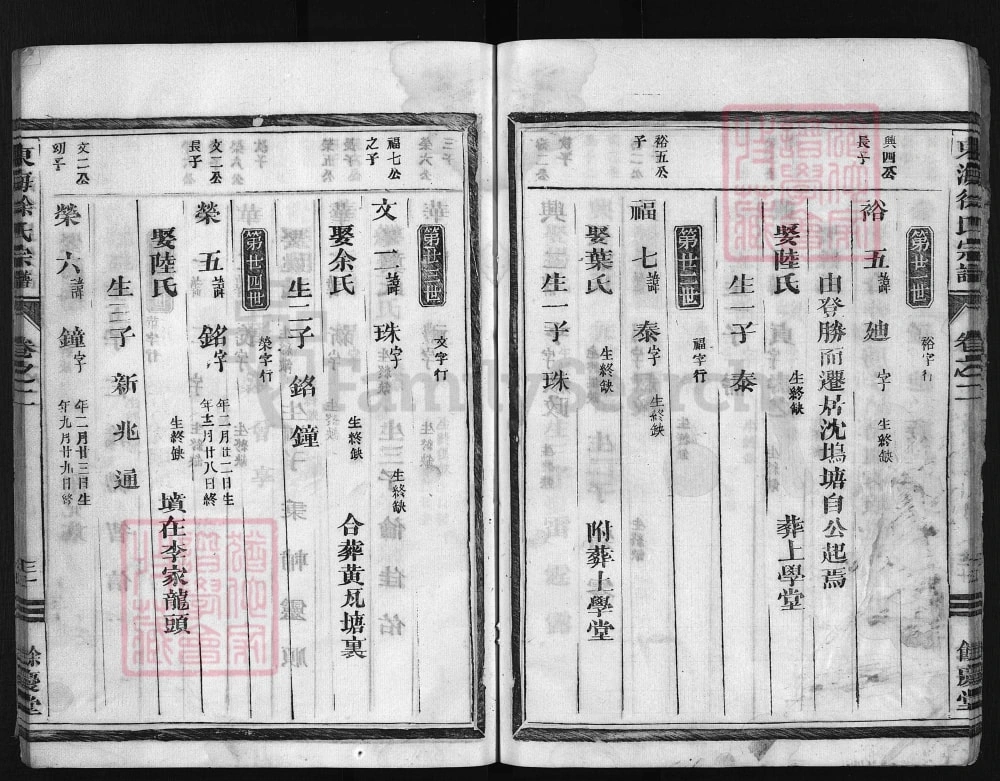 第廿一世
裕字行
興四公
長子
裕五諱廸字生終缺
由登勝而遷居沈塢塘自公起焉
娶陸氏生終缺葬上學堂
生一子泰
第廿二世
福字行
裕五公
子
福七諱泰字生終缺
娶葉氏生終缺附葬上學堂
生一子珠
第廿三世
文字行
福七公
之子
文二諱珠字生終缺
娶余氏生終缺合葬黄瓦塘裏
生二子銘鐘
第廿四世
榮字行
文二公
長子
榮五諱銘字
年二月廿二日生
年十二月廿八日終
娶陸氏生終缺墳在李家龍頭
生三子新兆通
文二公
幼子
榮六諱鐘字
年二月廿三日生
年九月廿九日終
東海徐氏宗譜
卷之二
餘慶堂
FamilySearch